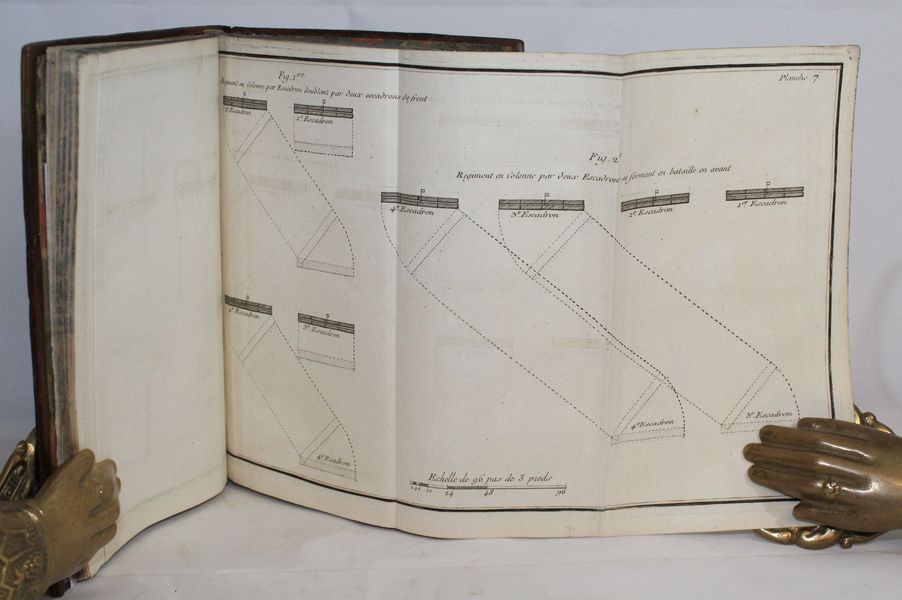 Planche 7
Fig. 1.re
Regiment en Colonne par Escadron doublant par deux escadrons de front
2.e Escadron
1.r Escadron
4.e Escadron
3.e Escadron
4.e Esadron
Fig. 2.e
Regiment en Colonne par deux Escadrons se formant en bataille en avant
4.e Escadron
3.e Escadron
2.e Escadron
1.er Escadron
4.e Escadron
3.e Escadron
Echelle de 96 pas de 3 pieds
24 48 96